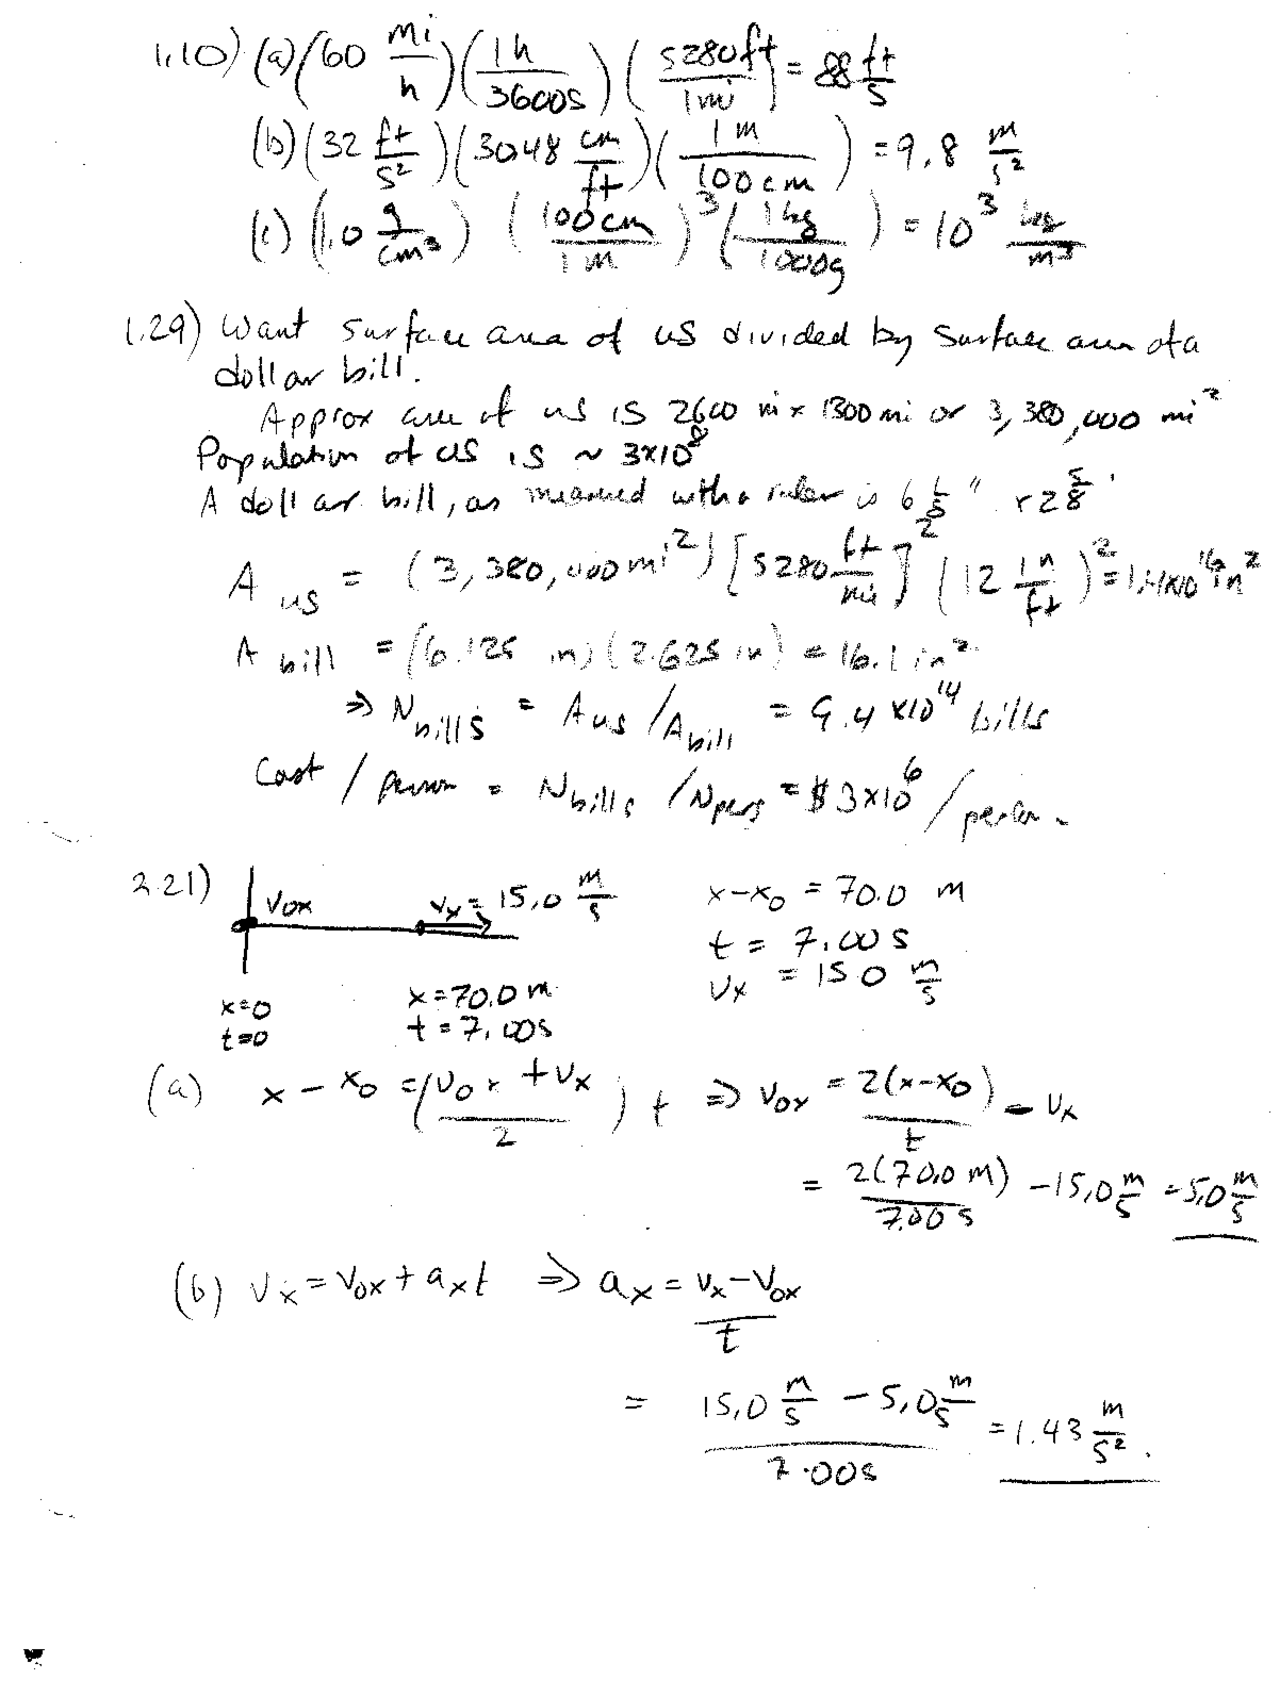 1.10) (a) (60 mi/h) (1h/3600s) (5280ft/1mi) = 88 ft/s
(b) (32 ft/s²) (30.48 cm/ft) (1m/100cm) = 9.8 m/s²
(c) (1.0 g/cm³) (100cm/1m)³ (1kg/1000g) = 10³ kg/m³
1.29) Want surface area of US divided by surface area of a
dollar bill.
Approx area of US is 2600 mi x 1300 mi or 3,380,000 mi²
Population of US is ~ 3x10⁸
A dollar bill, as measured with a ruler is 6 1/8" x 2 5/8"
A us = (3,380,000 mi²) [5280 ft/mi]² (12 in/ft)² = 1.4x10¹⁶ in²
A bill = (6.125 in) (2.625 in) = 16.1 in²
⇒ N bills = A us / A bill = 9.4 x10¹⁴ bills
Cost / person = N bills / N pers = $3x10⁶ / person.
2.21)
v0x
vx = 15.0 m/s
x - x0 = 70.0 m
t = 7.00 s
vx = 15.0 m/s
x=0
t=0
x=70.0 m
t=7.00s
(a) x - x0 = (v0x + vx / 2) t ⇒ v0x = 2(x-x0)/t - vx
= 2(70.0 m)/7.00 s - 15.0 m/s = 5.0 m/s
(b) vx = v0x + ax t ⇒ ax = vx - v0x / t
= 15.0 m/s - 5.0 m/s / 7.00s = 1.43 m/s².